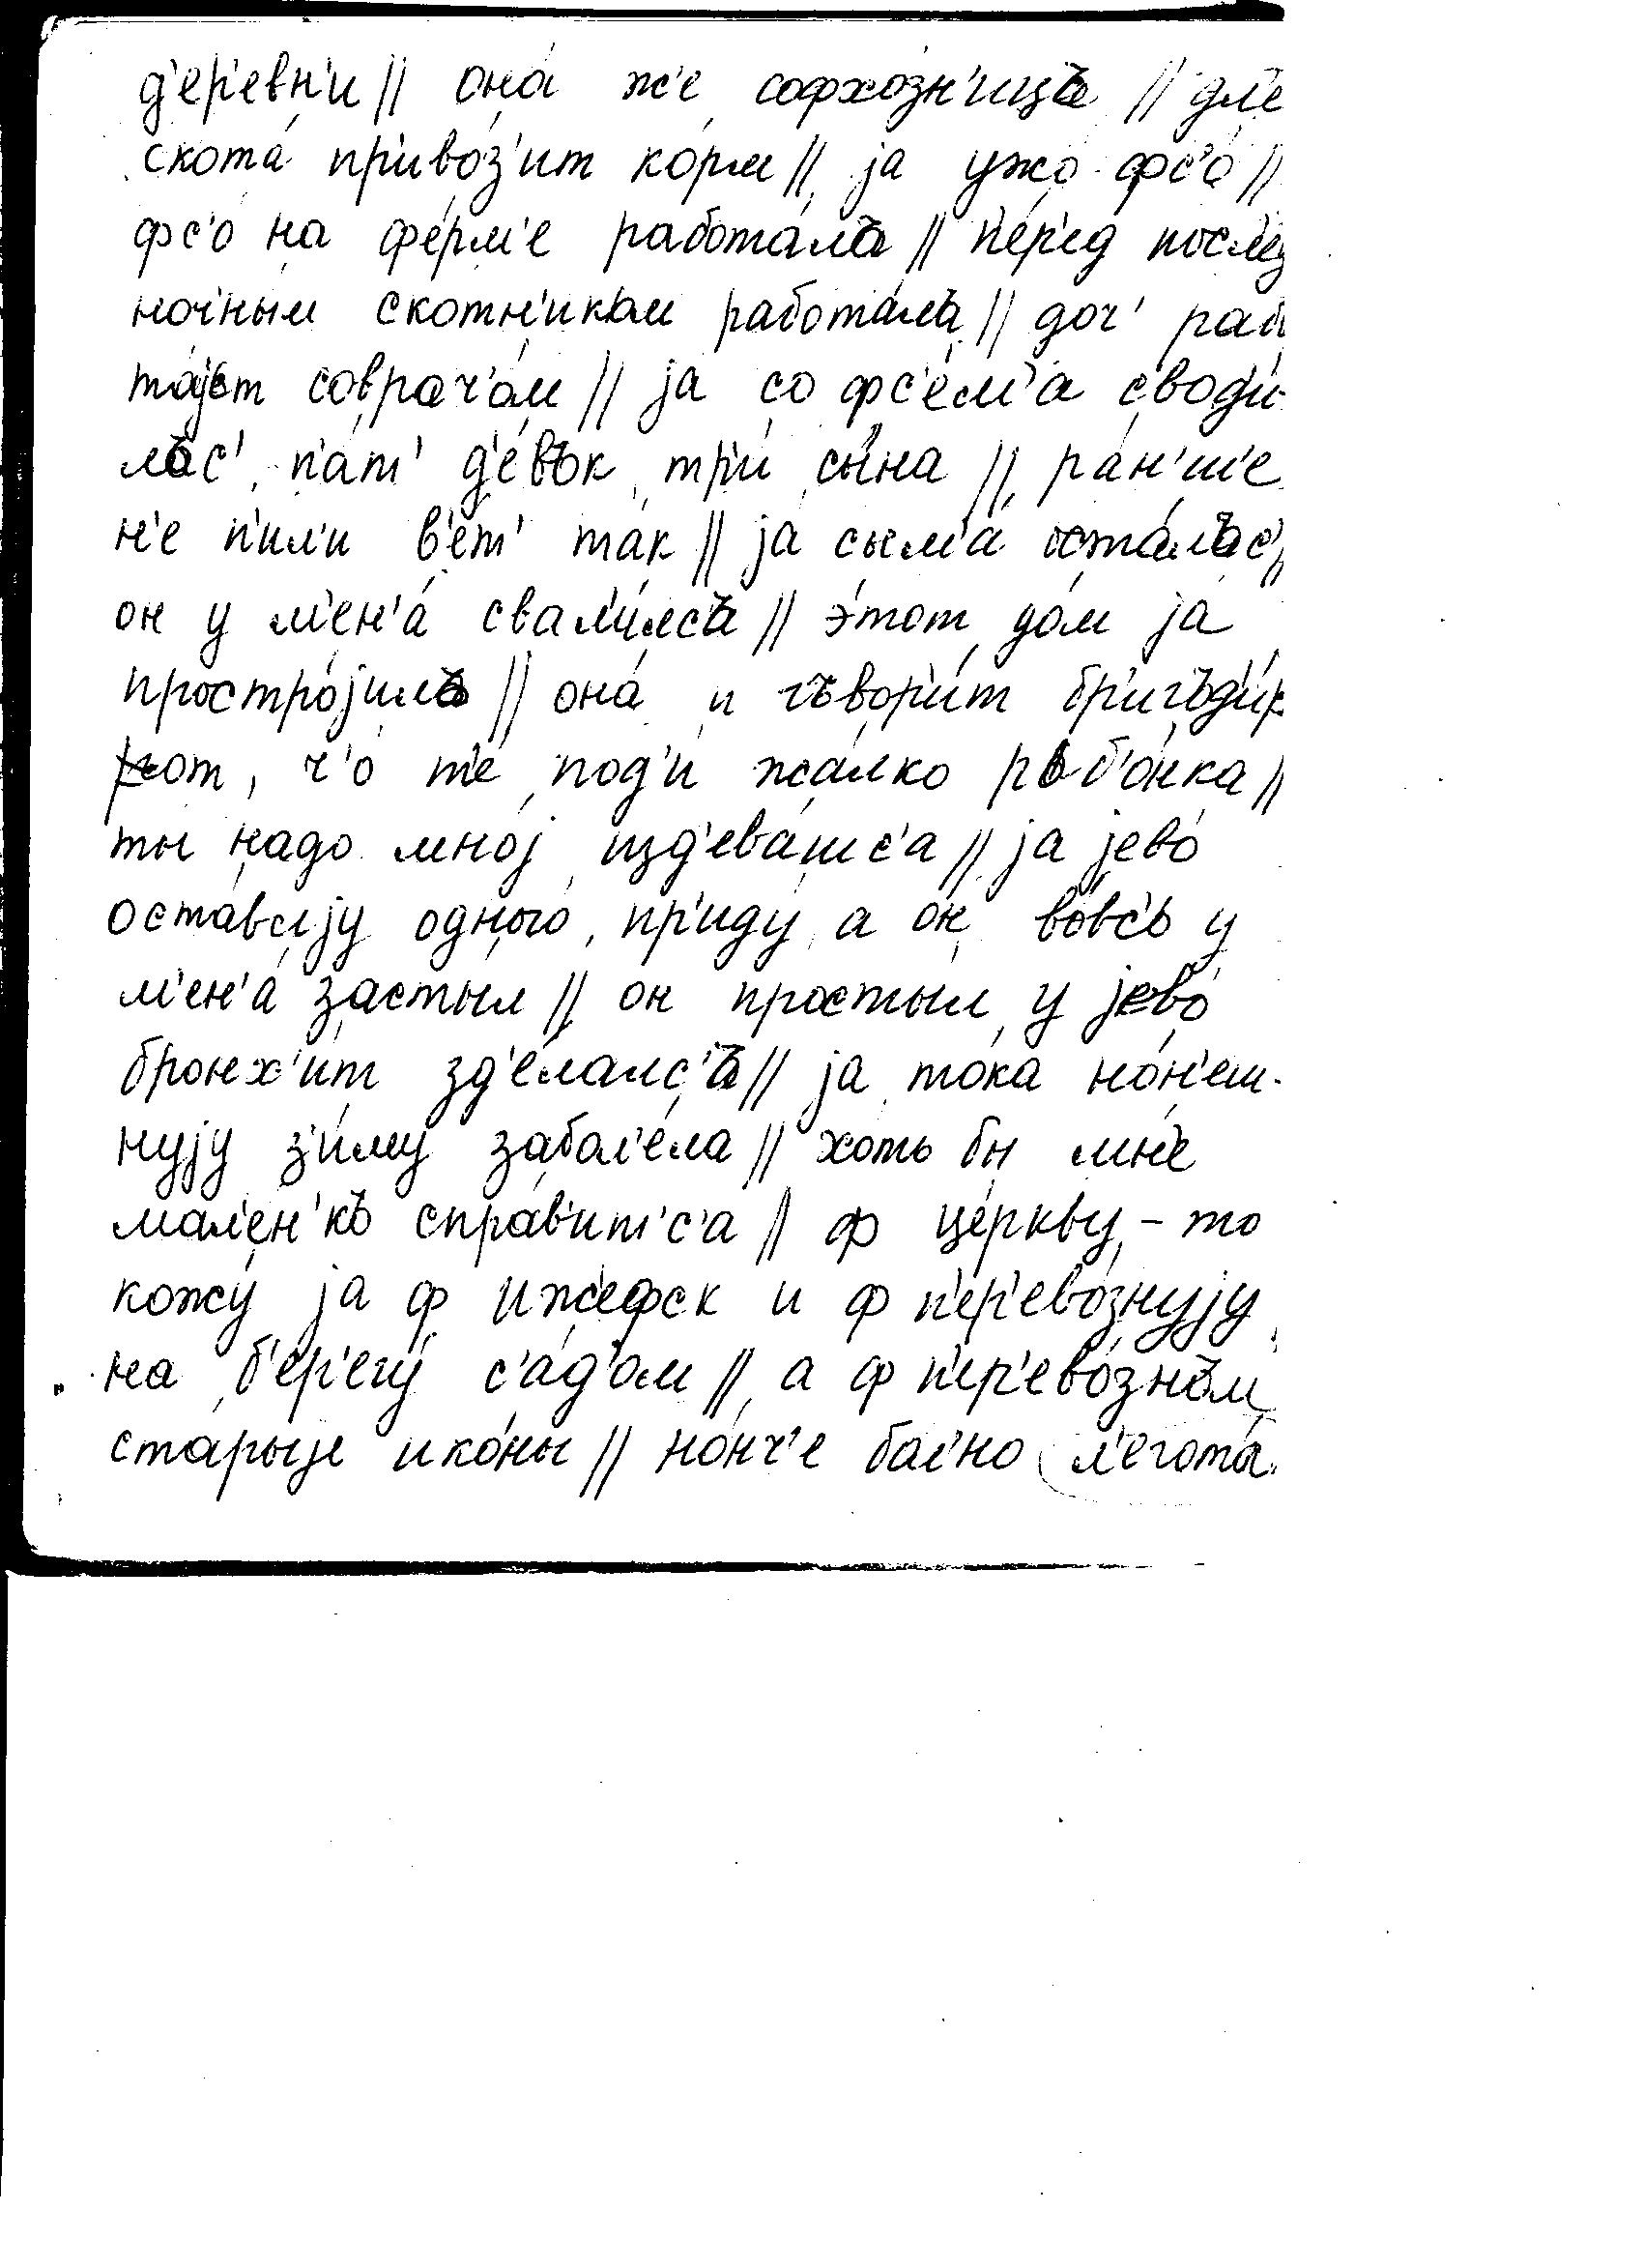 д'ер'евн'и // она́ ж'е софхо́зн'ицъ // дл'е
скота́ пр'иво́з'ит ко́рм // ја ужо́ фс'о́ //
фс'о на фе́рм'е работа́лъ // п'е́р'ед
ночны́м скотн'икъм работа́лъ // доч'
та́јът соврач'о́м // ја со фс'е́м'а своди́-
лъс' п'ат' д'е́вък три сы́на // ра́н'ш'е
н'е п'ил'и в'ет' так // ја сыма́ оста́лъс' //
он у м'ен'а́ свали́лсъ // э́тот до́м ја
простро́јилъ // она́ и гъвори́т бр'игъд'и́р
рот, ч'о т'е под'и жа́лко р'ьб'о́нка //
ты надо мној изд'ева́шс'а // ја јево́
оста́вл'ју одного́, пр'иду́, а он во́вс'ь у
м'ен'а́ засты́л // он простыл у јево́
бронх'и́т зд'е́лалс'ъ // ја то́ка но́н'еш-
нују з'и́му забол'е́ла // хоть бы мн'е
мал'ен'къ спра́вит'с'а // ф це́ркву-то
хожу́ ја ф иже́фск и ф п'ер'ево́знују
на б'ер'егу́ с'а́д'ом // а ф п'ер'ево́знъм
ста́рыје ико́ны // но́нч'е ба́сно л'егота́